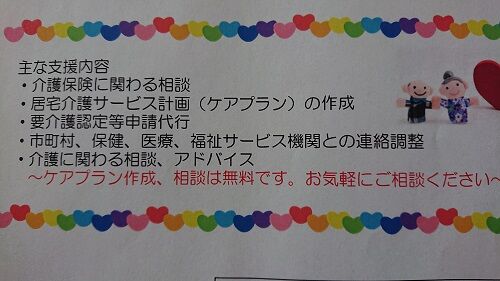 主な支援内容
・介護保険に関わる相談
・居宅介護サービス計画（ケアプラン）の作成
・要介護認定等申請代行
・市町村、保健、医療、福祉サービス機関との連絡調整
・介護に関わる相談、アドバイス
～ケアプラン作成、相談は無料です。お気軽にご相談ください～